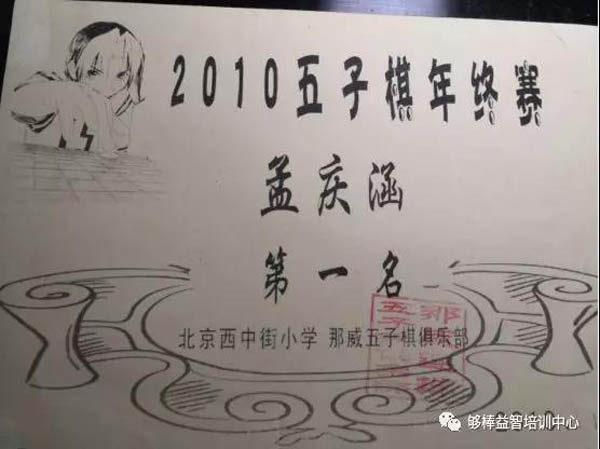 2010五子棋年终赛
孟庆涵
第一名
北京西中街小学 那威五子棋俱乐部
够棒益智培训中心